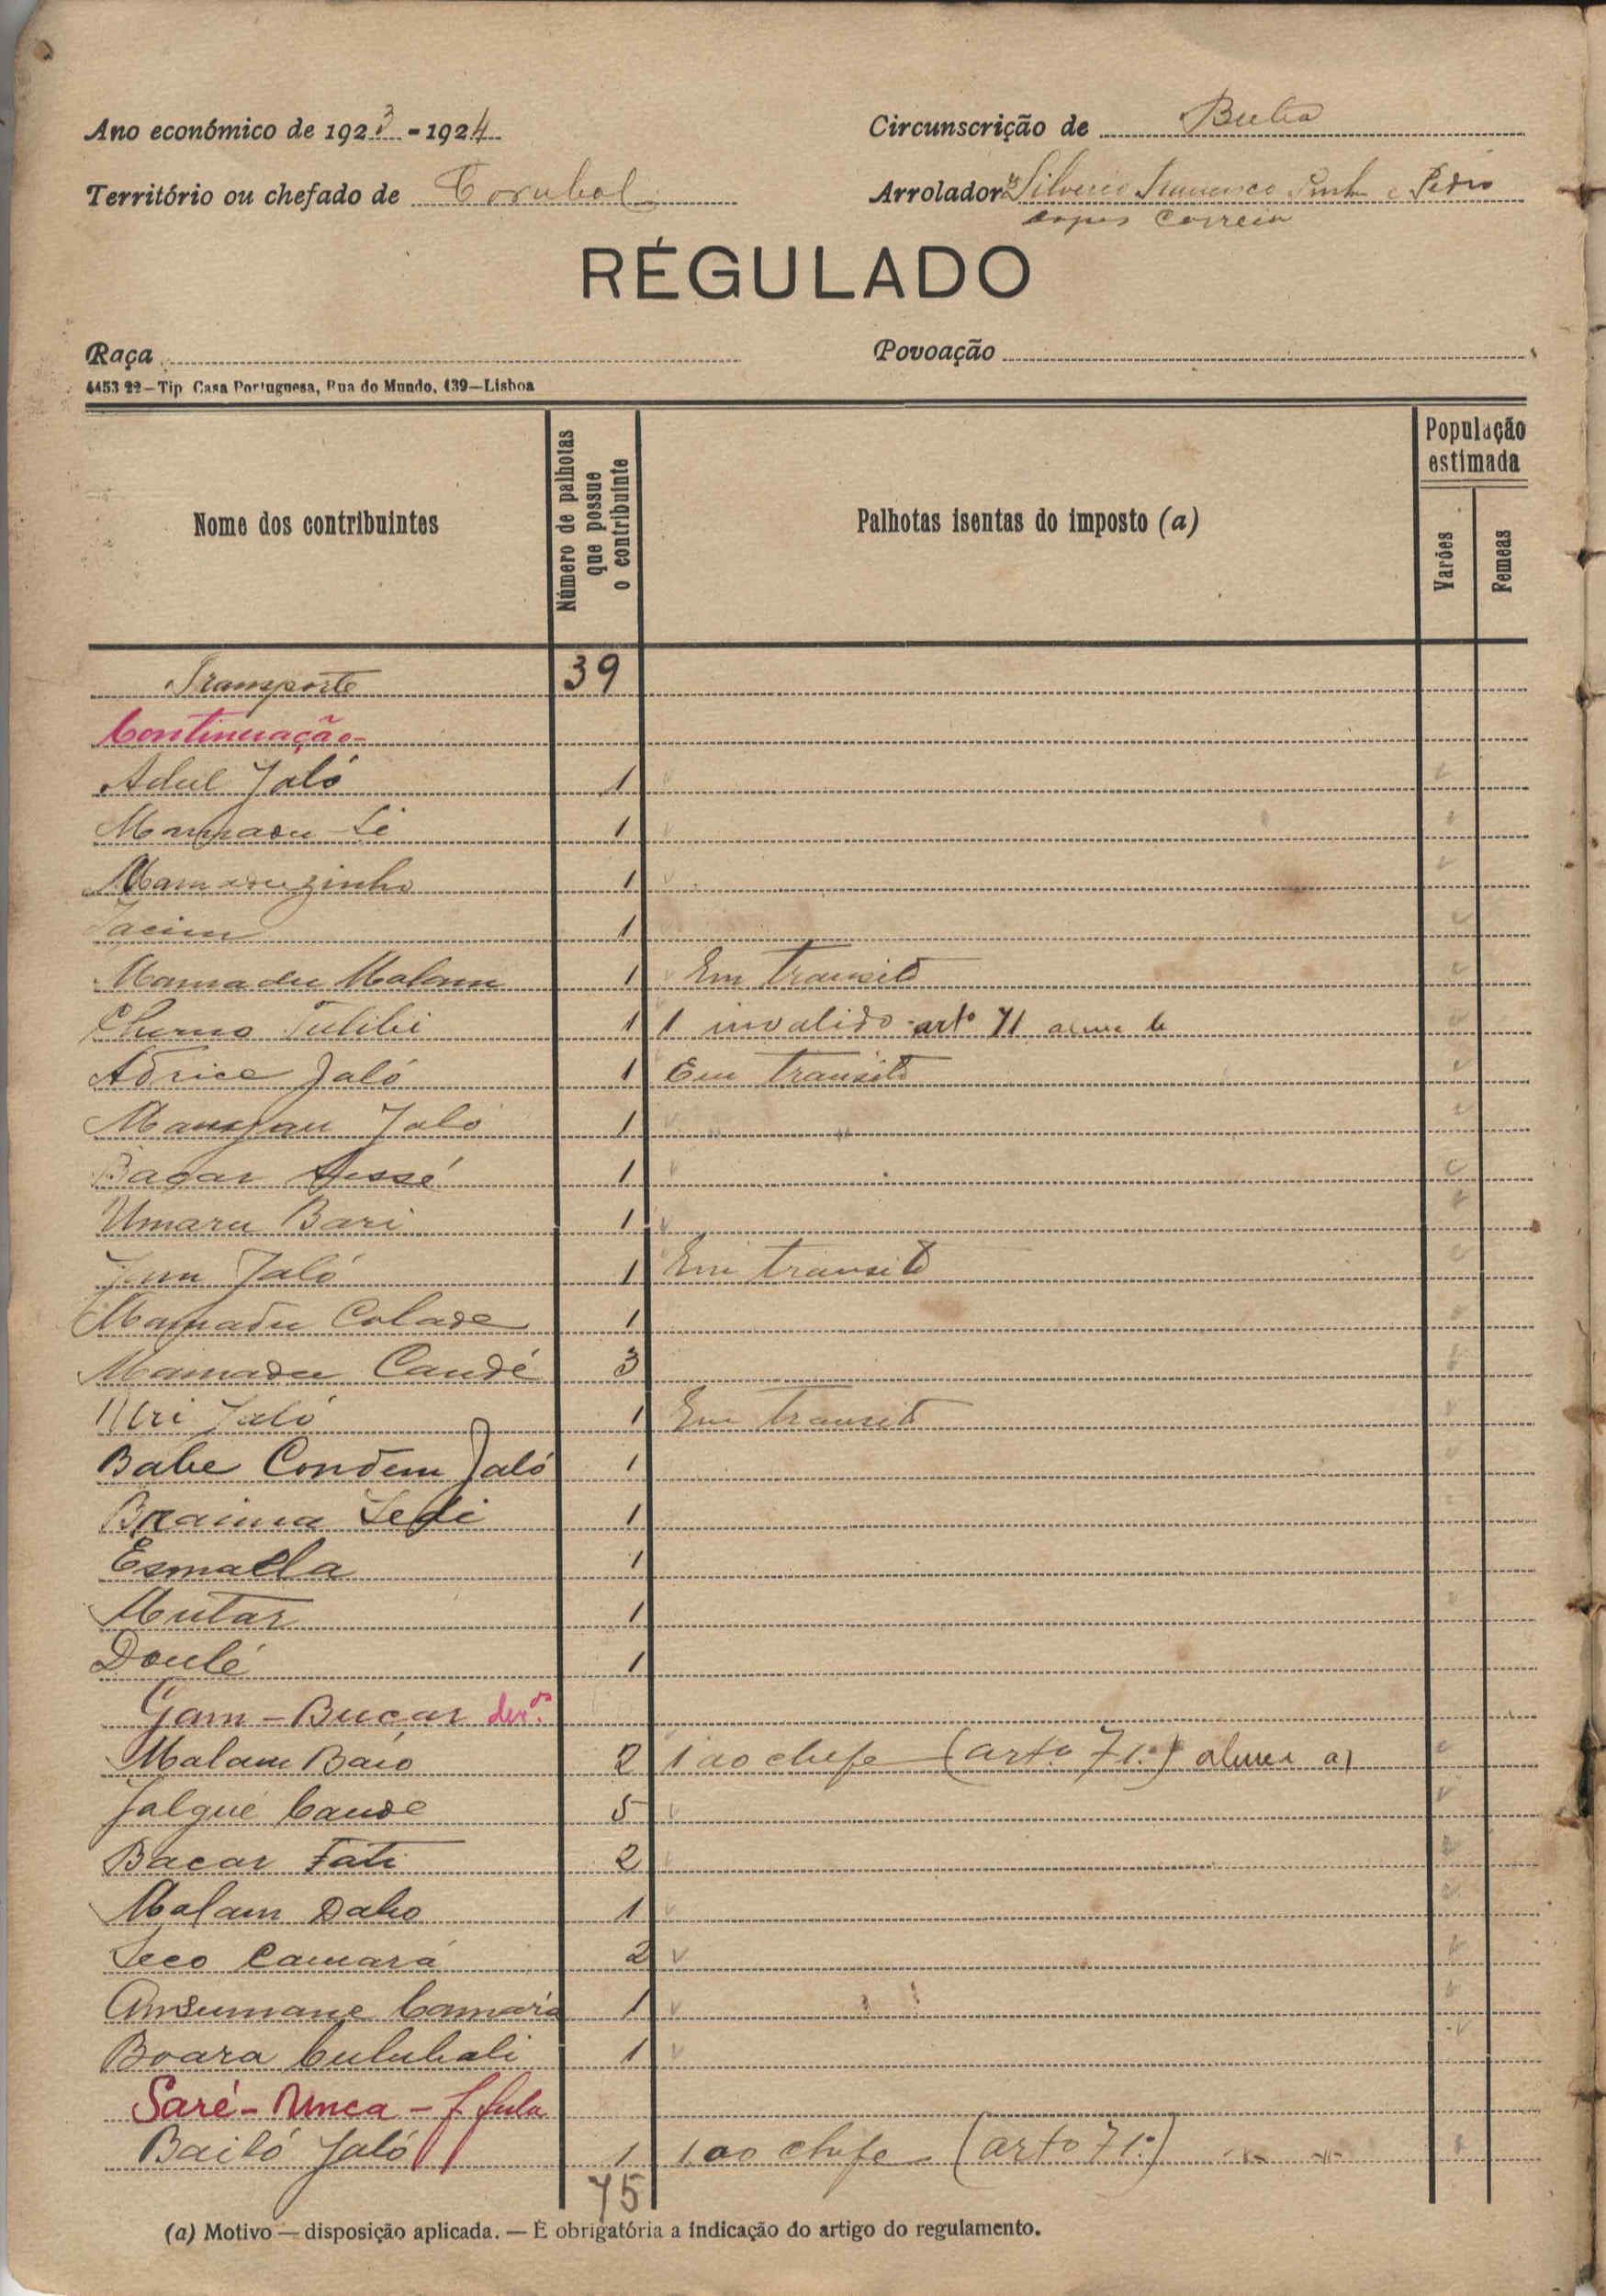 Ano económico de 1923-1924
Circunscrição de Buba
Território ou chefado de Corubal
Arrolador Silverio Francisco e Pedro
Lopes Correia
RÉGULADO
Raça
Povoação
4453 22—Tip Casa Portuguesa, Rua do Mundo, 139—Lisboa
Nome dos contribuintes
Número de palhotas que possue o contribuinte
Palhotas isentas do imposto (a)
População estimada
Varões
Femeas
Transporte 39
Continuação
Adul Jaló 1
Mamadu Li 1
Mamaduzinho 1
1
Mamadu Malam 1 Em transito
Cherno Tulibi 1 1 invalido arto 71
Adrice Jaló 1 Em transito
Jaló 1
Bacar 1
Umaru Bari 1
Jaló 1 Em transito
Mamadu Colade 1
Mamadu Candé 3
Jaló 1 Em transito
Babe Condem Jaló 1
Braima Sedi 1
Esmaela 1
Mutar 1
Doulé 1
Gam-Bucar
Malam Baio 2 1 ao chefe (arto 71º) alinea a)
Jalqué Cande 5
Bacar Fati 2
Malam Daho 1
Seco Camará 2
Ansumane Camará 1
Boara Culubali 1
Saré-Nunca - f fula
Bailó Jaló 1 1 ao chefe (arto 71º) " "
75
(a) Motivo — disposição aplicada. — É obrigatória a indicação do artigo do regulamento.